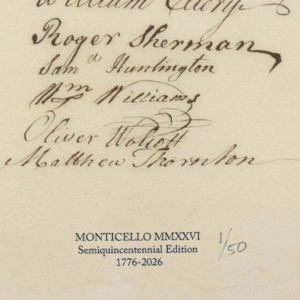 William Ellery
Roger Sherman
Samel Huntington
Wm Williams
Oliver Wolcott
Matthew Thornton
MONTICELLO MMXXVI
Semiquincentennial Edition
1776-2026
1/50